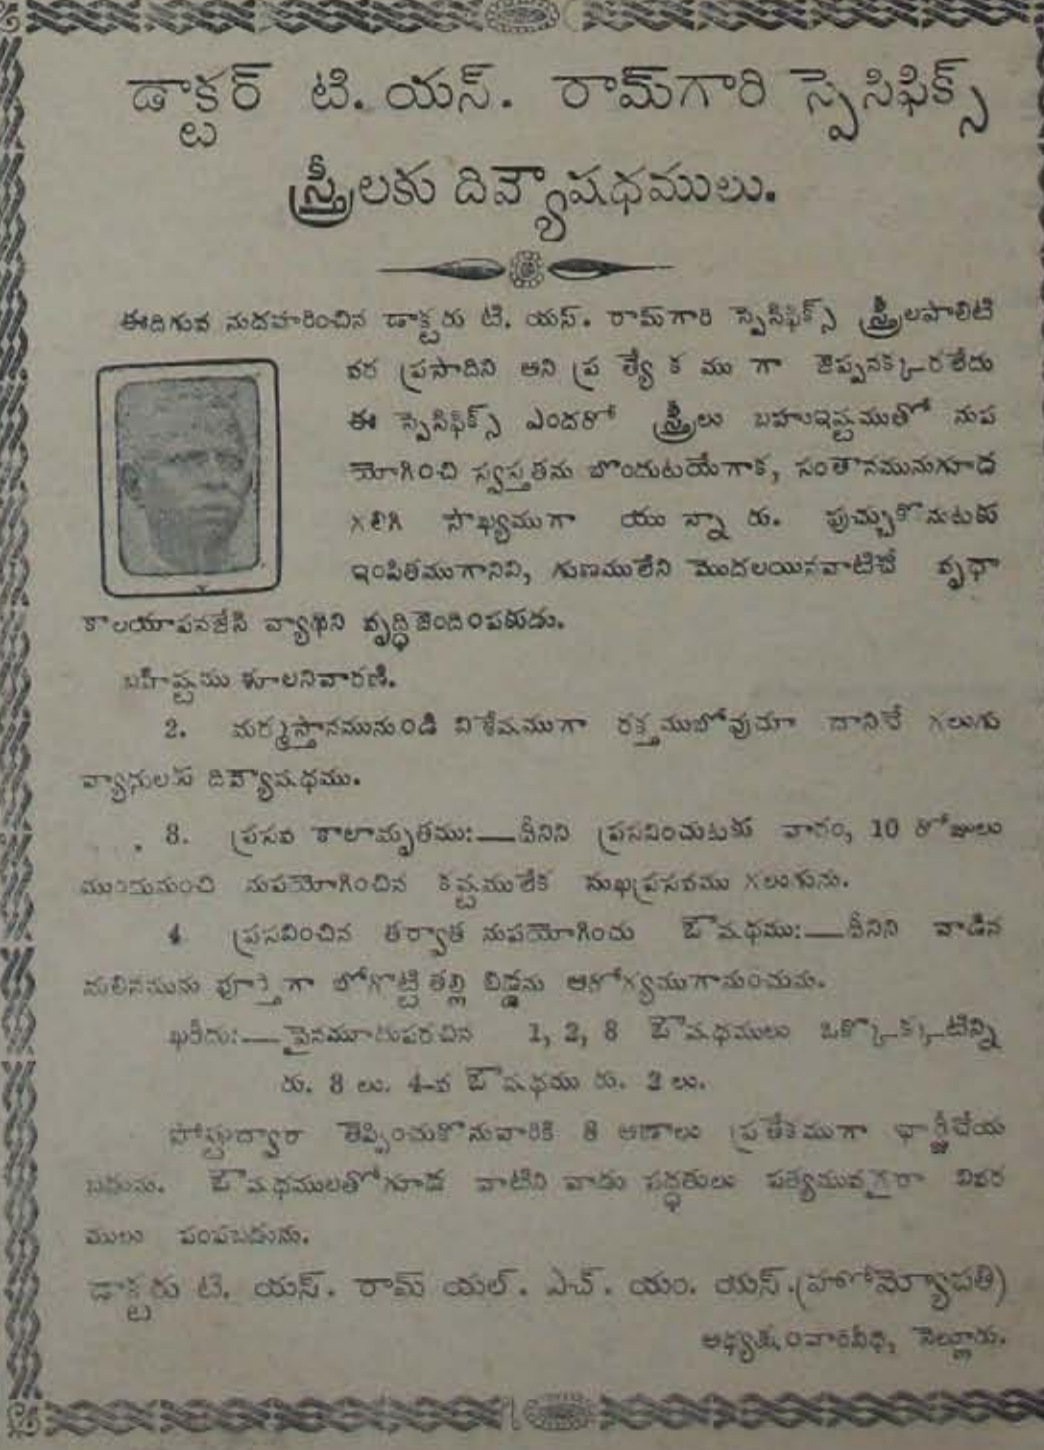 డాక్టర్ టి. యస్. రామ్‌గారి స్పెసిఫిక్స్
స్త్రీలకు దివ్యౌషధములు.
ఈదిగువ నుదహరించిన డాక్టరు టి. యస్. రామ్‌గారి స్పెసిఫిక్స్ స్త్రీలపాలిటి
వర ప్రసాదిని అని ప్ర త్యే క ము గా జెప్పనక్కరలేదు
ఈ స్పెసిఫిక్స్ ఎందరో స్త్రీలు బహుఇష్టముతో నుప
యోగించి స్వస్తతను బొందుటయేగాక, సంతానమునుగూడ
గలిగి సౌఖ్యముగా యు న్నా రు. పుచ్చుకొనుటకు
ఇంపితముగానివి, గుణములేని మొదలయినవాటిచే వృథా
కాలయాపనజేసి వ్యాధిని వృద్ధిజెందింపకుడు.
బహిష్టుయ శూలనివారణి.
2. మర్మస్తానమునుండి విశేషముగా రక్తముబోవుచూ దానిచే గలుగు
వ్యాధులకు దివ్యౌషధము.
3. ప్రసవ కాలామృతము:—దీనిని ప్రసవించుటకు వారం, 10 రోజులు
ముందునుంచి నుపయోగించిన కష్టములేక సుఖప్రసవము గలుగును.
4 ప్రసవించిన తర్వాత నుపయోగించు ఔషధము:—దీనిని వాడిన
మలినమును పూర్తిగా బోగొట్టి తల్లి బిడ్డను ఆరోగ్యముగానుంచును.
ఖరీదు:—పైనమూదుపరచిన 1, 2, 3 ఔషధములు ఒక్కొక్కటిన్ని
రు. 3 లు. 4-వ ఔషధము రు. 2 లు.
పోస్టుద్వారా తెప్పించుకొనువారికి 8 అణాలు ప్రతేకముగా ఛార్జీచేయ
బడును. ఔషధములతోగూడ వాటిని వాడు పద్ధతులు పత్యమువగైరా వివర
ములు పంపబడును.
డాక్టరు టి. యస్. రామ్ యల్. ఎచ్. యం. యస్.(హోమ్యోపతి)
నెల్లూరు.